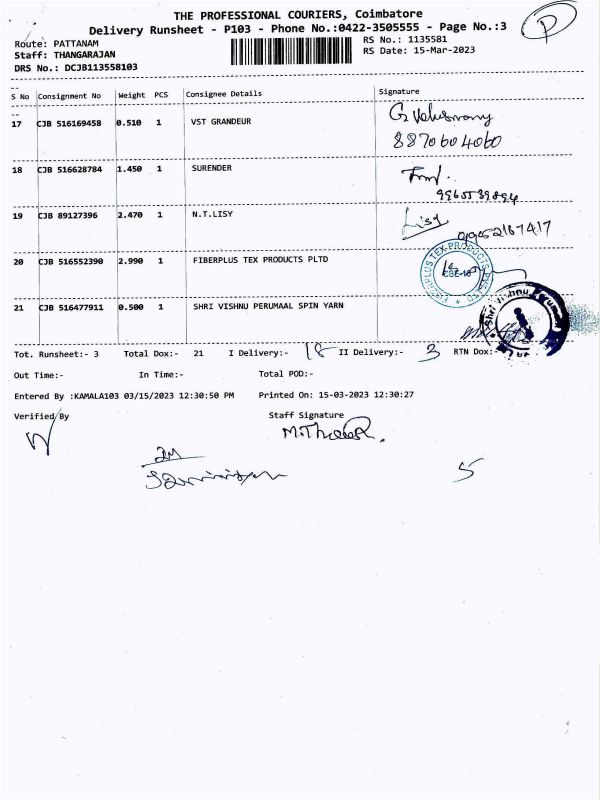 THE PROFESSIONAL COURIERS, Coimbatore
Delivery Runsheet - P103 - Phone No.:0422-3505555 - Page No.:3
P
Route: PATTANAM
RS No.: 1135581
Staff: THANGARAJAN
RS Date: 15-Mar-2023
DRS No.: DCJB113558103
S No Consignment No Weight PCS Consignee Details Signature
17 CJB 516169458 0.510 1 VST GRANDEUR
8870604060
18 CJB 516628784 1.450 1 SURENDER
19 CJB 89127396 2.470 1 N.T.LISY Lisy
9952167417
20 CJB 516552390 2.990 1 FIBERPLUS TEX PRODUCTS PLTD
21 CJB 516477911 0.500 1 SHRI VISHNU PERUMAAL SPIN YARN
Tot. Runsheet:- 3 Total Dox:- 21 I Delivery:- 18 II Delivery:- 3 RTN Dox:-
Out Time:- In Time:- Total POD:-
Entered By :KAMALA103 03/15/2023 12:30:50 PM Printed On: 15-03-2023 12:30:27
Verified By Staff Signature
5